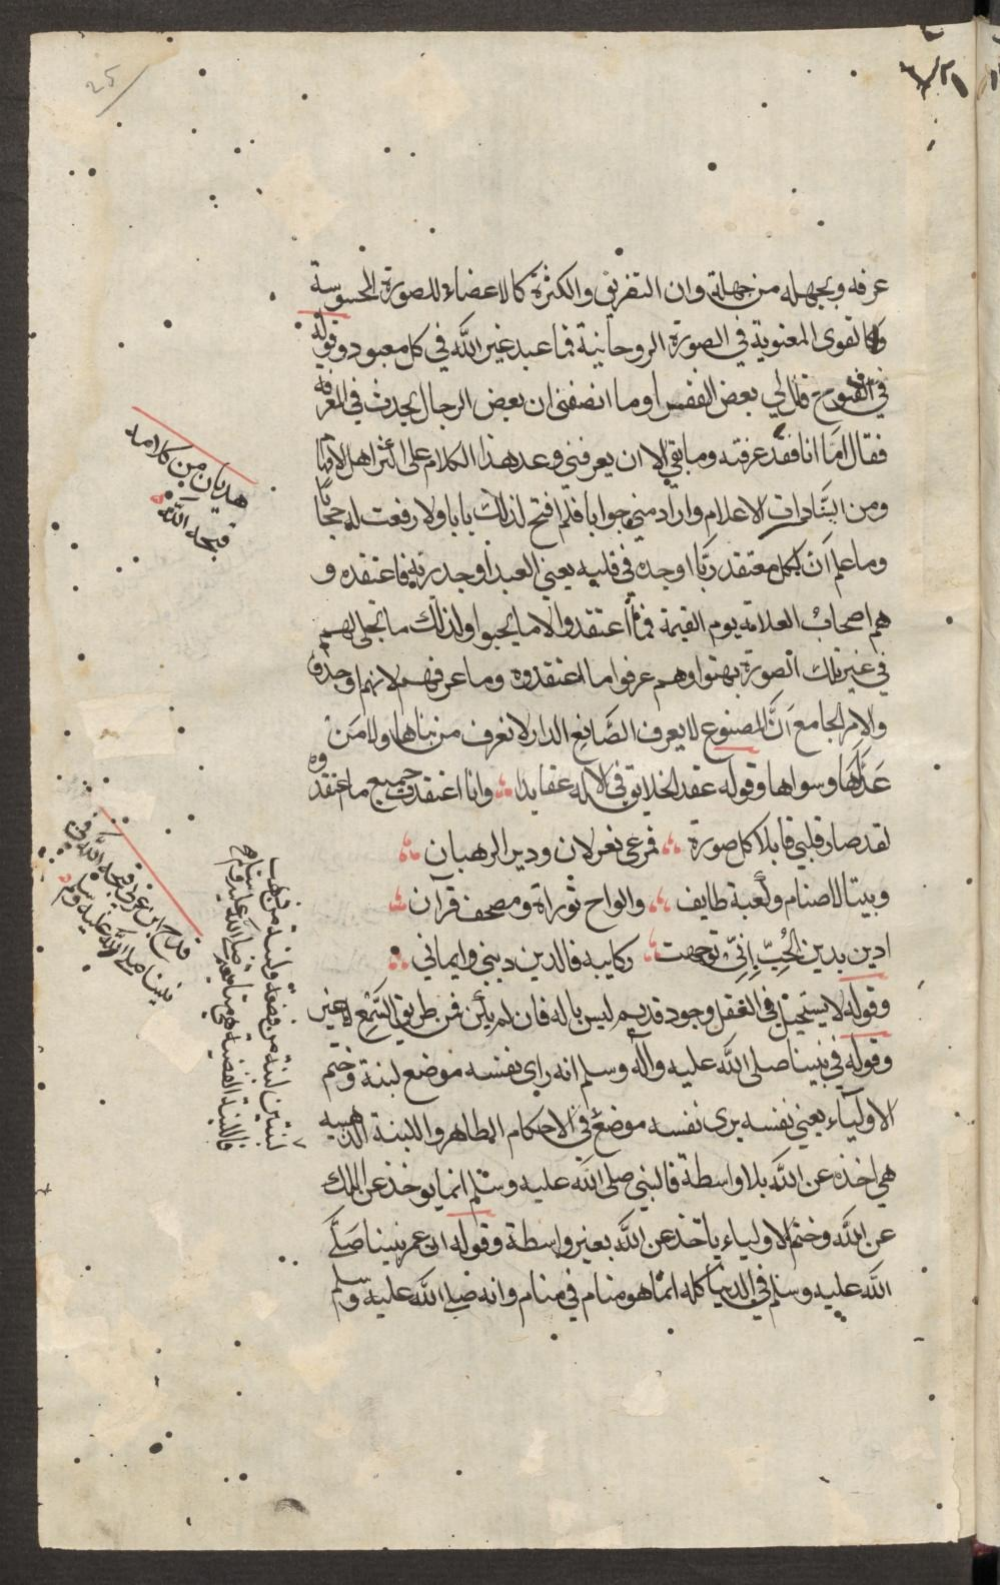 عرفه ويجهله من جهله وان التفريق والكثرة كالاعضاء للصورة المحسوسة
وكالقوى المعنوية في الصورة الروحانية فما عبد غير الله في كل معبود وقوله
في الفتوح قال لي بعض الفقرا وما انصفني ان بعض الرجال يحدث في المعرفة
فقال اما انا فقد عرفته وما بقي الا ان يعرفني وعد هذا الكلام على اكثر اهل
ومن السادات الاعلام واراد مني جوابا فلم افتح لذلك بابا ولا رفعت له حجابا
وما علم ان لكل معتقد ربا اوجده في قلبه يعني العبد اوجد ربه فاعتقده و
هم اصحاب العلامة يوم القيمة فما اعتقدوا الا ما نحتوا ولذلك ما تجلى لهم
في غير تلك الصورة بهتوا وهم عرفوا ما اعتقدوه وما عرفهم لانهم اوجدوه
والامر الجامع ان المصنوع لا يعرف الصانع الدار لا تعرف من بناها ولا من
عدلها وسواها وقوله عقد الخلايق في الاله عقايدا وانا اعتقدت جميع ما اعتقدوه
لقد صار قلبي قابلا كل صورة فمرعى لغزلان ودير الرهبان
وبيتا لاصنام وكعبة طايف والواح توراة ومصحف قرآن
ادين بدين الحب اني توجهت ركايبه فالدين ديني وايماني
وقوله لا يستحيل في العقل وجود قديم ليس باله فان لم يكن فمن طريق السمع لا غير
وقوله في نبينا صلى الله عليه وآله وسلم انه راى نفسه موضع لبنة وختم
الاولياء يعني نفسه يرى نفسه موضع في الاحكام الظاهر واللبنة الذهبية
هي اخذه عن الله بلا واسطة فالنبي صلى الله عليه وسلم انما يوخذ عن الملك
عن الله وختم الاولياء ياخذ عن الله بغير واسطة وقوله ان عمر نبينا صلى
الله عليه وسلم في الدنيا كله انما هو منام في منام وانه صلى الله عليه وسلم
هذيان من كلامه
قبحه الله
قدح ابن عربي قبحه الله في
نبينا صلى الله عليه وسلم
لبنتين لبنة من فضة ولبنة من ذهب
فاللبنة الفضة هي متابعته صلى الله عليه وسلم
25